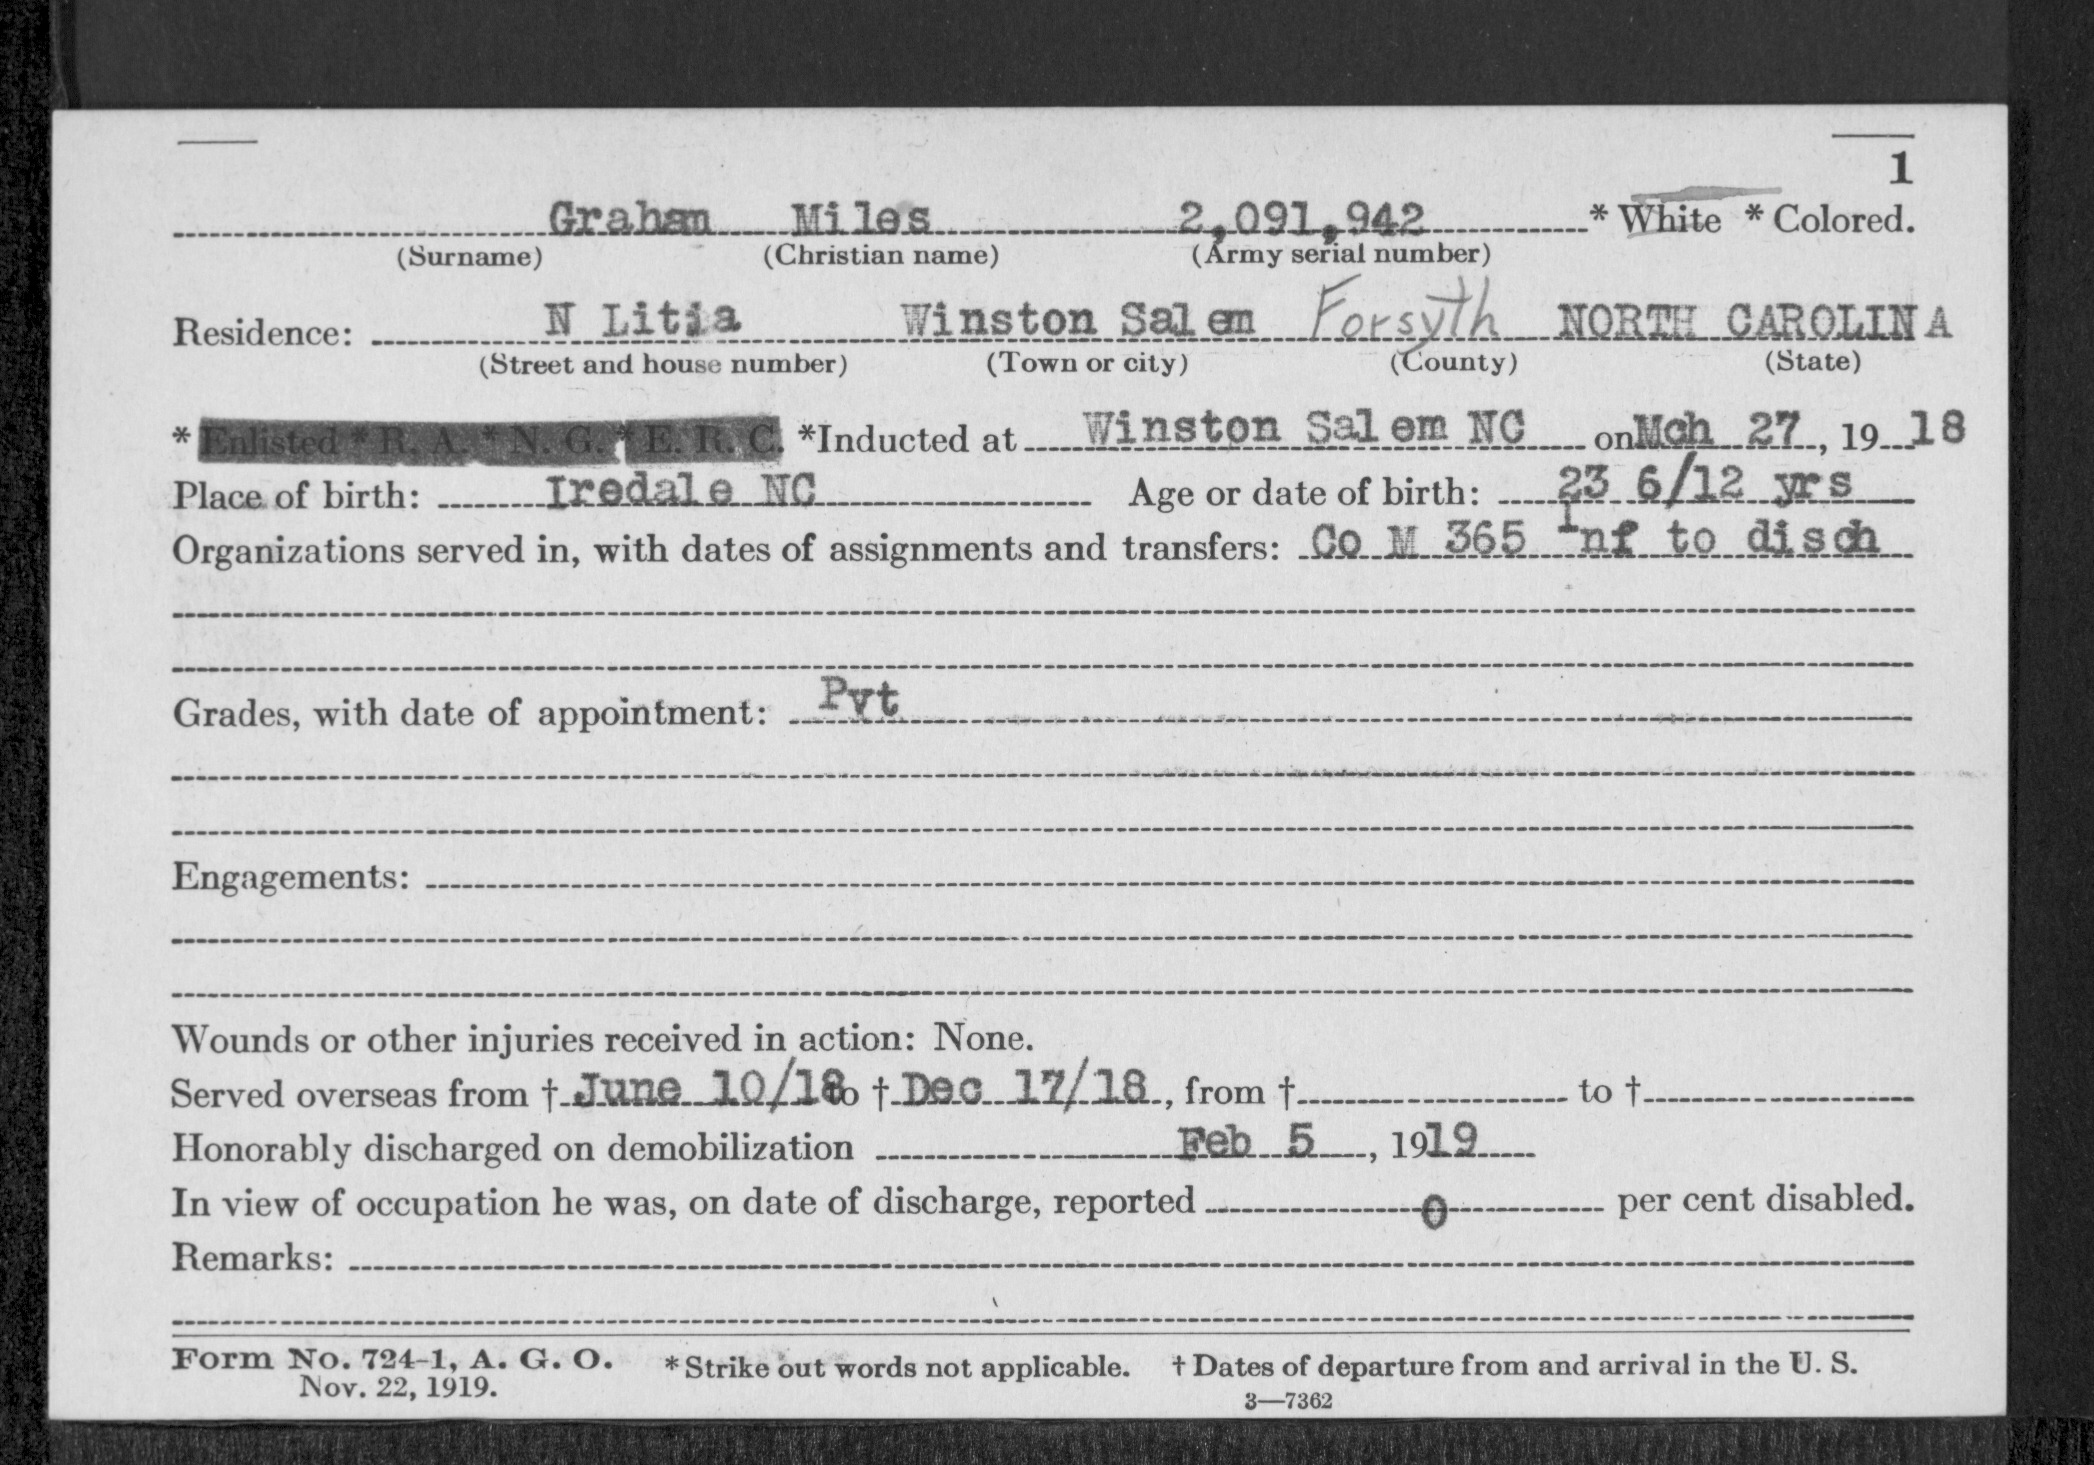 1
Graham Miles 2,091,942 * White * Colored.
(Surname) (Christian name) (Army serial number)
Residence: N Litia Winston Salem Forsyth NORTH CAROLINA
(Street and house number) (Town or city) (County) (State)
* Enlisted * R. A. * N. G. * E. R. C. *Inducted at Winston Salem NC on Mch 27, 19 18
Place of birth: Iredale NC Age or date of birth: 23 6/12 yrs
Organizations served in, with dates of assignments and transfers: Co M 365 Inf to disch
Grades, with date of appointment: Pvt
Engagements:
Wounds or other injuries received in action: None.
Served overseas from † June 10/18 to † Dec 17/18, from † to †
Honorably discharged on demobilization Feb 5, 1919
In view of occupation he was, on date of discharge, reported 0 per cent disabled.
Remarks:
Form No. 724-1, A. G. O. * Strike out words not applicable. † Dates of departure from and arrival in the U. S.
Nov. 22, 1919.
3—7362